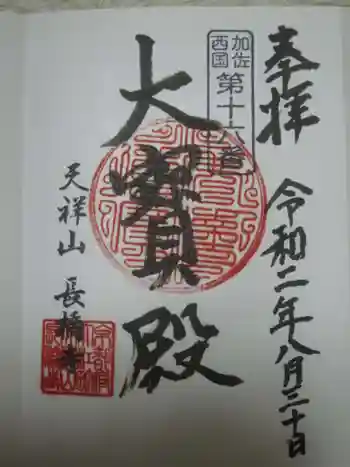 奉拝
令和二年八月三十日
加佐
西国
第十六番
大寳殿
天祥山 長橋寺